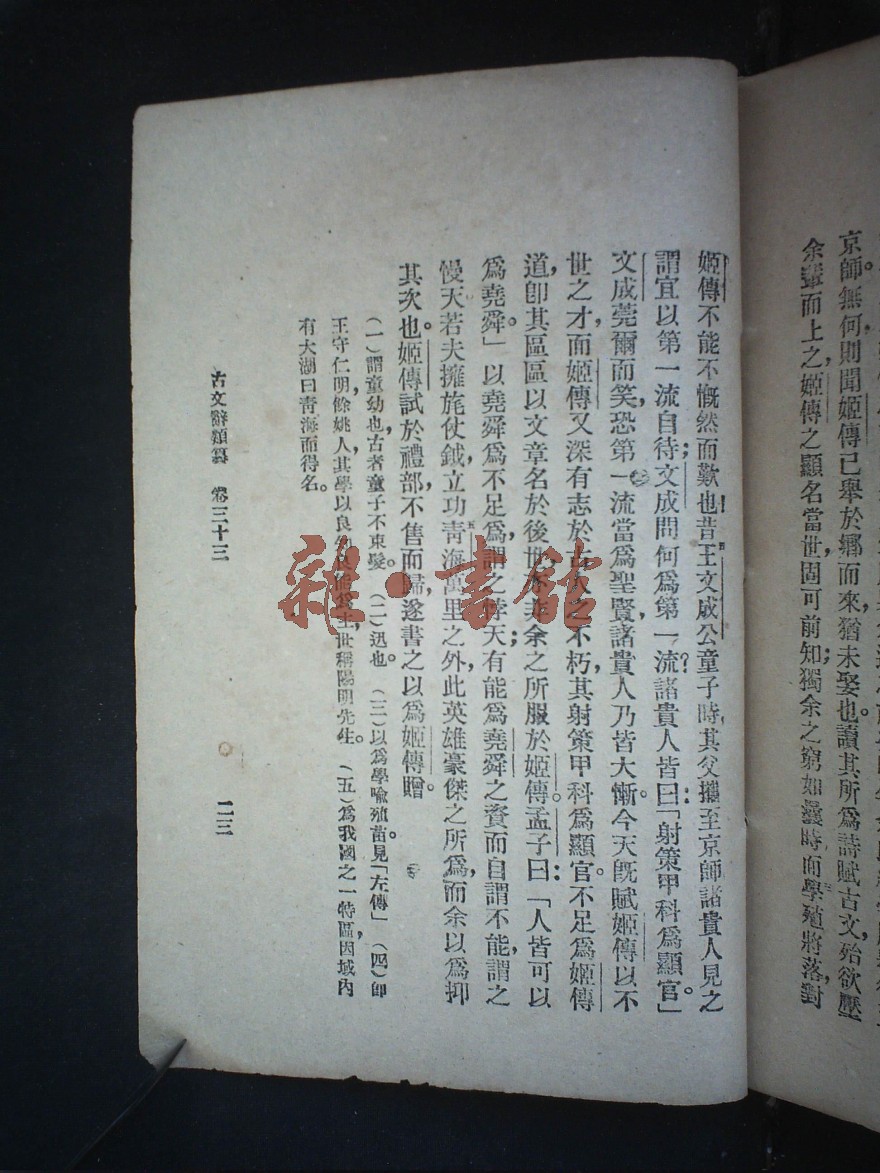 京師。無何則聞姬傳已舉於鄉而來，猶未娶也。讀其所為詩賦古文，殆欲壓
余輩而上之，姬傳之顯名當世，固可前知；獨余之窮如曩時，而學殖將落，對
姬傳不能不慨然而歎也。昔王文成公童子時，其父攜至京師，諸貴人見之，
謂宜以第一流自待；文成問何為第一流？諸貴人皆曰：「射策甲科為顯官。」
文成莞爾而笑，恐第一流當為聖賢，諸貴人乃皆大慚。今天既賦姬傳以不
世之才，而姬傳又深有志於古人之不朽，其射策甲科為顯官，不足為姬傳
道，即其區區以文章名於後世，亦非余之所服於姬傳。孟子曰：「人皆可以
為堯舜。」以堯舜為不足為，謂之悖天，有能為堯舜之資而自謂不能，謂之
慢天；若夫擁旄仗鉞，立功青海萬里之外，此英雄豪傑之所為，而余以為抑
其次也。姬傳試於禮部，不售而歸，遂書之以為姬傳贈。
（一）謂童幼也，古者童子不束髮。（二）迅也。（三）以為學喻殖苗，見「左傳」。（四）即
王守仁，明餘姚人，其學以良知良能為主，世稱陽明先生。（五）為我國之一特區，因域內
有大湖曰青海而得名。
古文辭類纂 卷三十三
二三
雜·書館